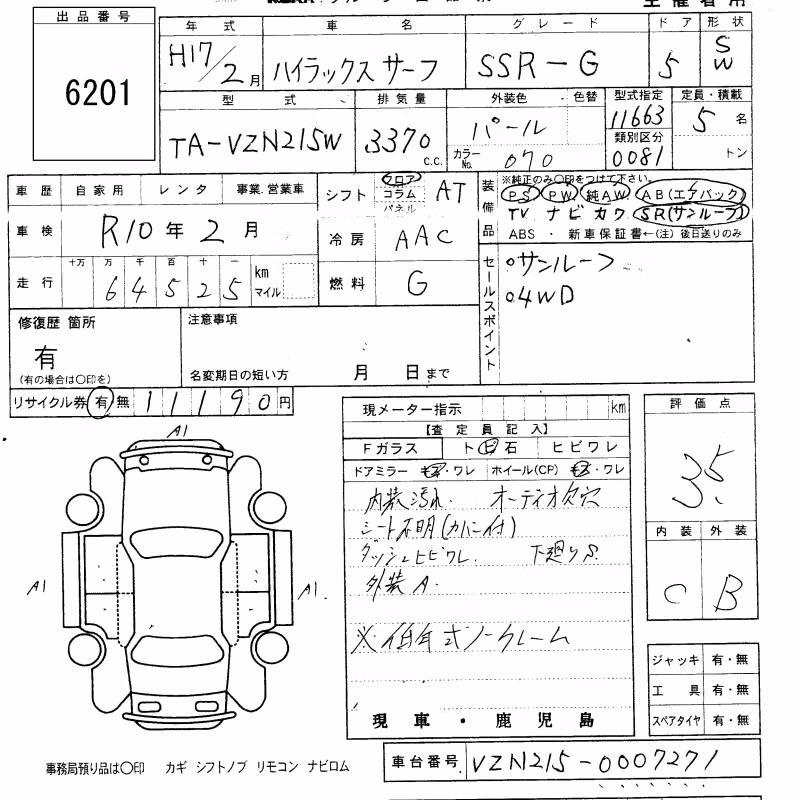 出品番号
6201
年式 車名 グレード ドア 形状
H17/2月 ハイラックスサーフ SSR-G 5 SW
型式 排気量 外装色 色替 型式指定 定員・積載
TA-VZN215W 3370 c.c. パール 11663 5名
カラーNo. 070 類別区分 0081 トン
車歴 自家用 レンタ 事業.営業車 シフト フロア コラム パネル AT
装備品 ※純正のみ○印をつけて下さい。
PS PW 純AW AB(エアバック)
TV ナビ カワ SR(サンルーフ)
ABS ・ 新車保証書←(注)後日送りのみ
車検 R10年2月 冷房 AAC
走行 十万 万 千 百 十 一
64525 km マイル 燃料 G
セールスポイント
○サンルーフ
○4WD
修復歴 箇所 注意事項
有
(有の場合は○印を) 名変期日の短い方 月 日まで
リサイクル券 有 無 11190円
現メーター指示 km
【査定員記入】
Fガラス ト ビ 石 ヒビワレ
ドアミラー キズ・ワレ ホイール(CP) キズ・ワレ
内装汚れ. オーディオ欠穴
シート不明(カバー付)
ダッシュヒビワレ. 下廻りS.
外装A.
※低年式ノークレーム
現車・鹿児島
評価点
3.5
内装 外装
C B
A1
A1
A1.
ジャッキ 有・無
工具 有・無
スペアタイヤ 有・無
事務局預り品は○印 カギ シフトノブ リモコン ナビロム
車台番号 VZN215-0007271